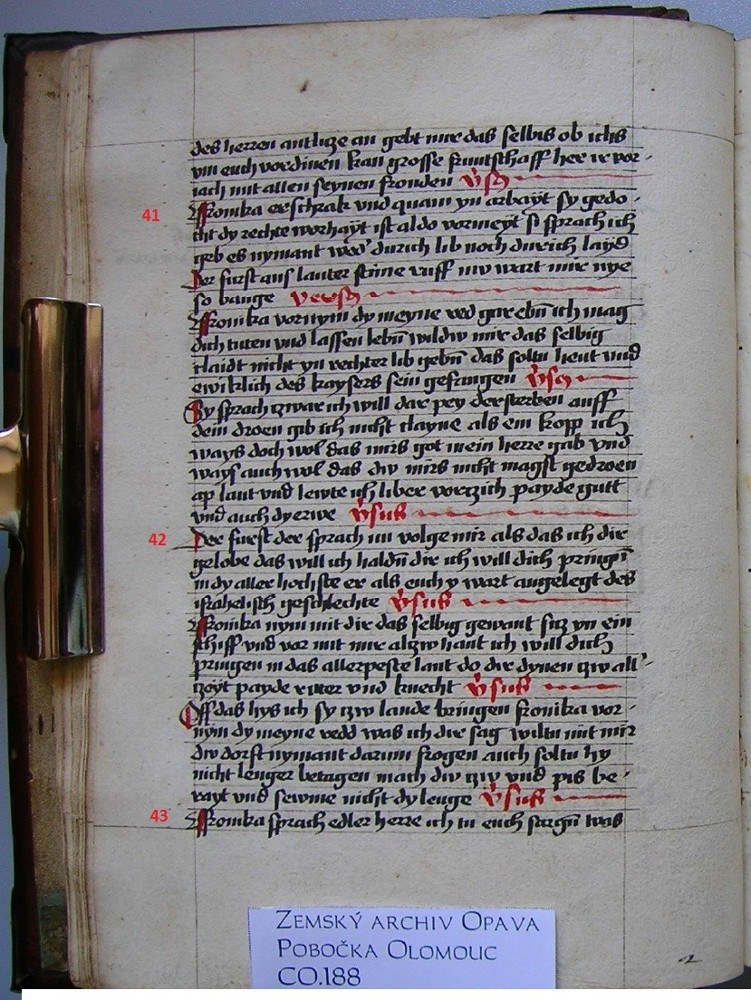 des herren antlicze an gebt mir das selbis ob ichs
vm euch vordinen kan grosse kuntschaff her ir vor-
iach mit allen seynen fronden v̉s
41
Fronika erschrak vnd quam yn arbayt sy gedo-
cht dy rechte worhayt ist aldo vormeyt si sprach ich
geb es nymant wed' durich lib noch durich layd
Der furst aus lauter stime ruff nw wart mir nye
so bange vers
Fronika vornym dy meyne red gar ebn̄ ich mag
dich tuten vnd lassen lebn̄ wildw mir das selbig
claidt nicht yn rechter lib gebn̄ das soltu heut vnd
ewiklich des kaysers sein gefangen v̉s
Sy sprach zwar ich will dar pey dersterben auff
dein droen gib ich nicht clayne als ein kopp ich
ways doch wol das mirs got mein herre gab vnd
ways auch wol das dw mirs nicht magst gedroen
ap laut vnd lewte ich liber vorczich payde gutt
vnd auch dy erwe v̉sus
42
Der furst der sprach nu volge mir als das ich dir
gelobe das will ich haldn̄ dir ich will dich pringn̄
in dy aller hochste er als euch y wart angelegt des
israhelisch geschlechte v̉sus
Fronika nym mit dir das selbig gewant sicz yn ein
schiff vnd var mit mir alzw hant ich will dich
pringen in das allerpeste lant do dir dynen czw all-
czeyt payde ritter vnd knecht v̉sus
Off das hys ich sy czw lande bringen fronika vor-
nym dy meyne redd was ich dir sag wiltu mit mir
dw dorst nymant darum frogen auch soltu hy
nicht lenger betagen mach dw czw vnd pis be-
rayt vnd sewme nicht dy lenge v̉sus
43
Fronika sprach edler herre ich tu euch sargn̄ was
ZEMSKÝ ARCHIV OPAVA
POBOČKA OLOMOUC
CO.188